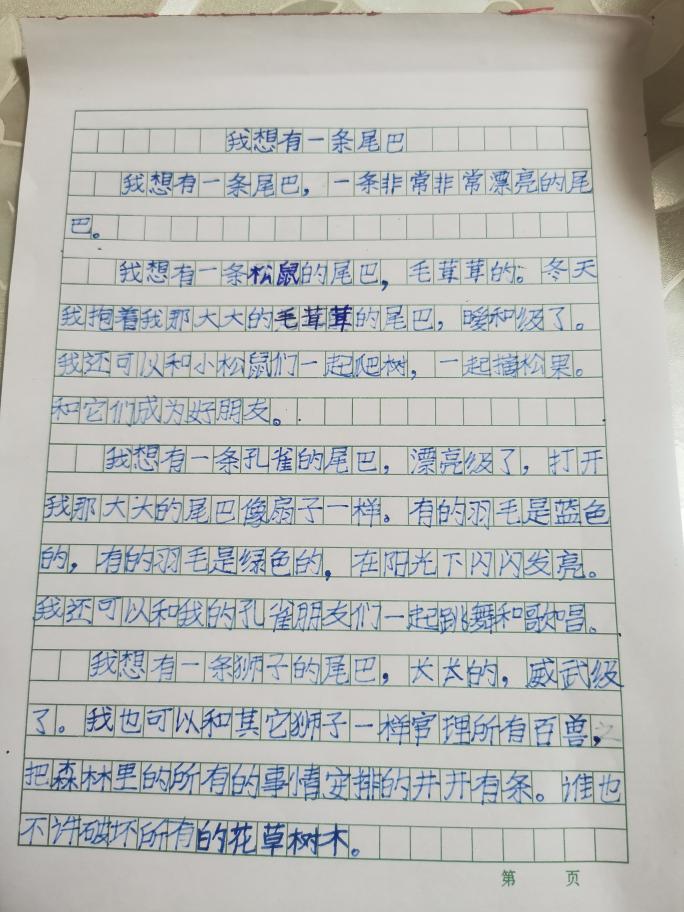 我想有一条尾巴
我想有一条尾巴，一条非常非常漂亮的尾
巴。
我想有一条松鼠的尾巴，毛茸茸的。冬天
我抱着我那大大的毛茸茸的尾巴，暧和级了。
我还可以和小松鼠们一起爬树，一起摘松果。
和它们成为好朋友。
我想有一条孔雀的尾巴，漂亮级了，打开
我那大大的尾巴像扇子一样。有的羽毛是蓝色
的，有的羽毛是绿色的，在阳光下闪闪发亮。
我还可以和我的孔雀朋友们一起跳舞和歌唱。
我想有一条狮子的尾巴，长长的，威武级
了。我也可以和其它狮子一样官理所有百兽，
把森林里的所有的事情安排的井井有条。谁也
不许破坏所有的花草树木。
第 页